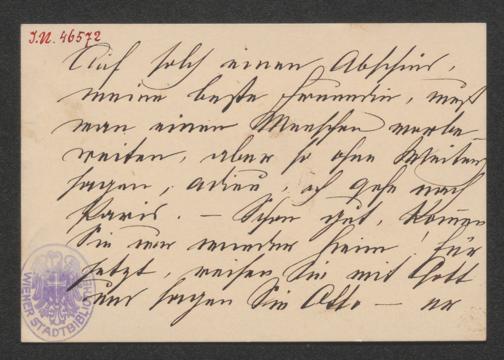 I.N. 46572
Auf solch einen Abschied,
meine beste Freundin, muß
man einen Menschen vorbe-
reiten, aber so ohne Weiters
sagen, adieu, ich gehe nach
Paris. — Schon gut, kommen
Sie nur wieder heim! Für
jetzt, reisen Sie mit Gott
und sagen Sie Otto — er
WIENER STADTBIBLIOTHEK